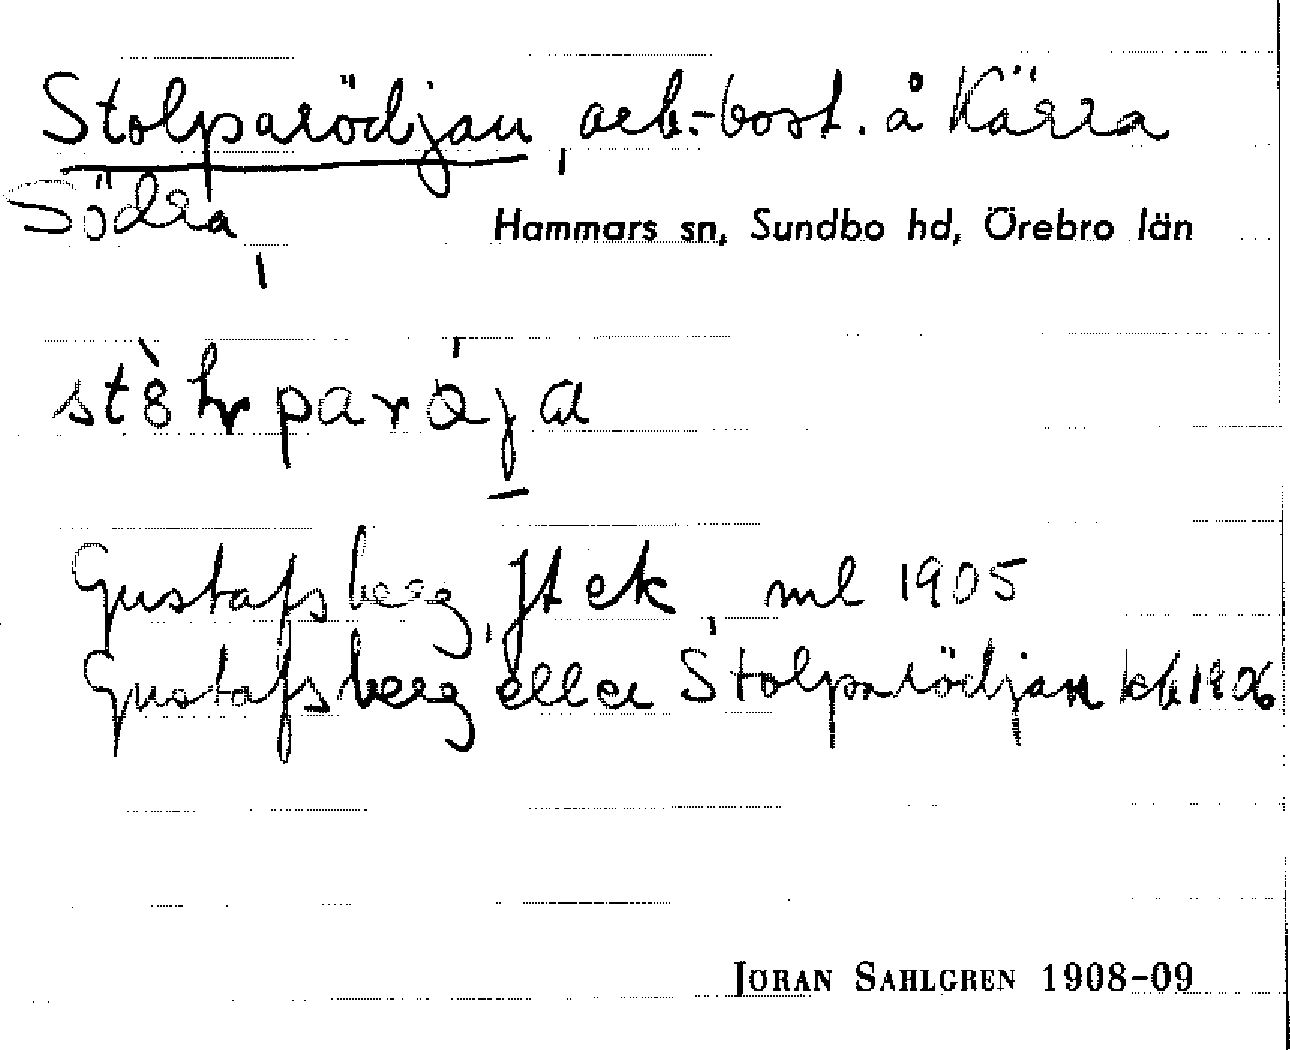 Stolparödjan, arb.-bost. å Kärra
Södra,
Hammars sn, Sundbo hd, Örebro län
Gustafsberg, Jt ek, ml 1905
Gustafsberg eller Stolparödjan kb 1806
JÖRAN SAHLGREN 1908-09